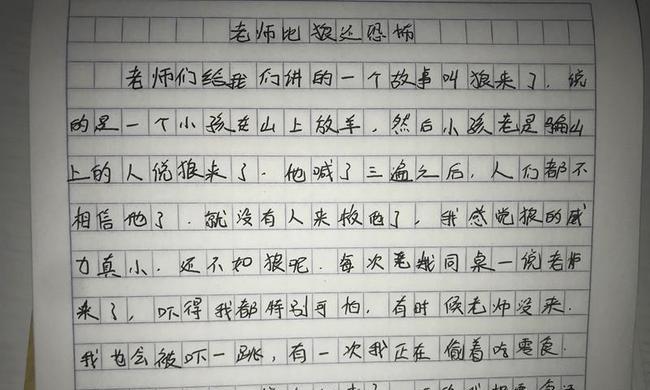 老师比狼还恐怖
老师们给我们讲的一个故事叫狼来了.说
的是一个小孩在山上放羊,然后小孩老是骗山
上的人说狼来了.他喊了三遍之后,人们都不
相信他了.就没有人来救他了,我感觉狼的威
力真小.还不如狼呢.每次老我同桌一说老师
来了,吓得我都特别可怕,有时候老师没来.
我也会被吓一跳,有一次我正在偷着吃零食.